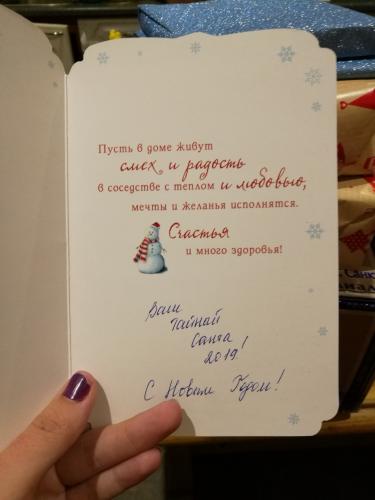 Пусть в доме живут
смех и радость
в соседстве с теплом и любовью,
мечты и желанья исполнятся.
Счастья
и много здоровья!
Ваш
Тайный
Санта
2019!
С Новым Годом!